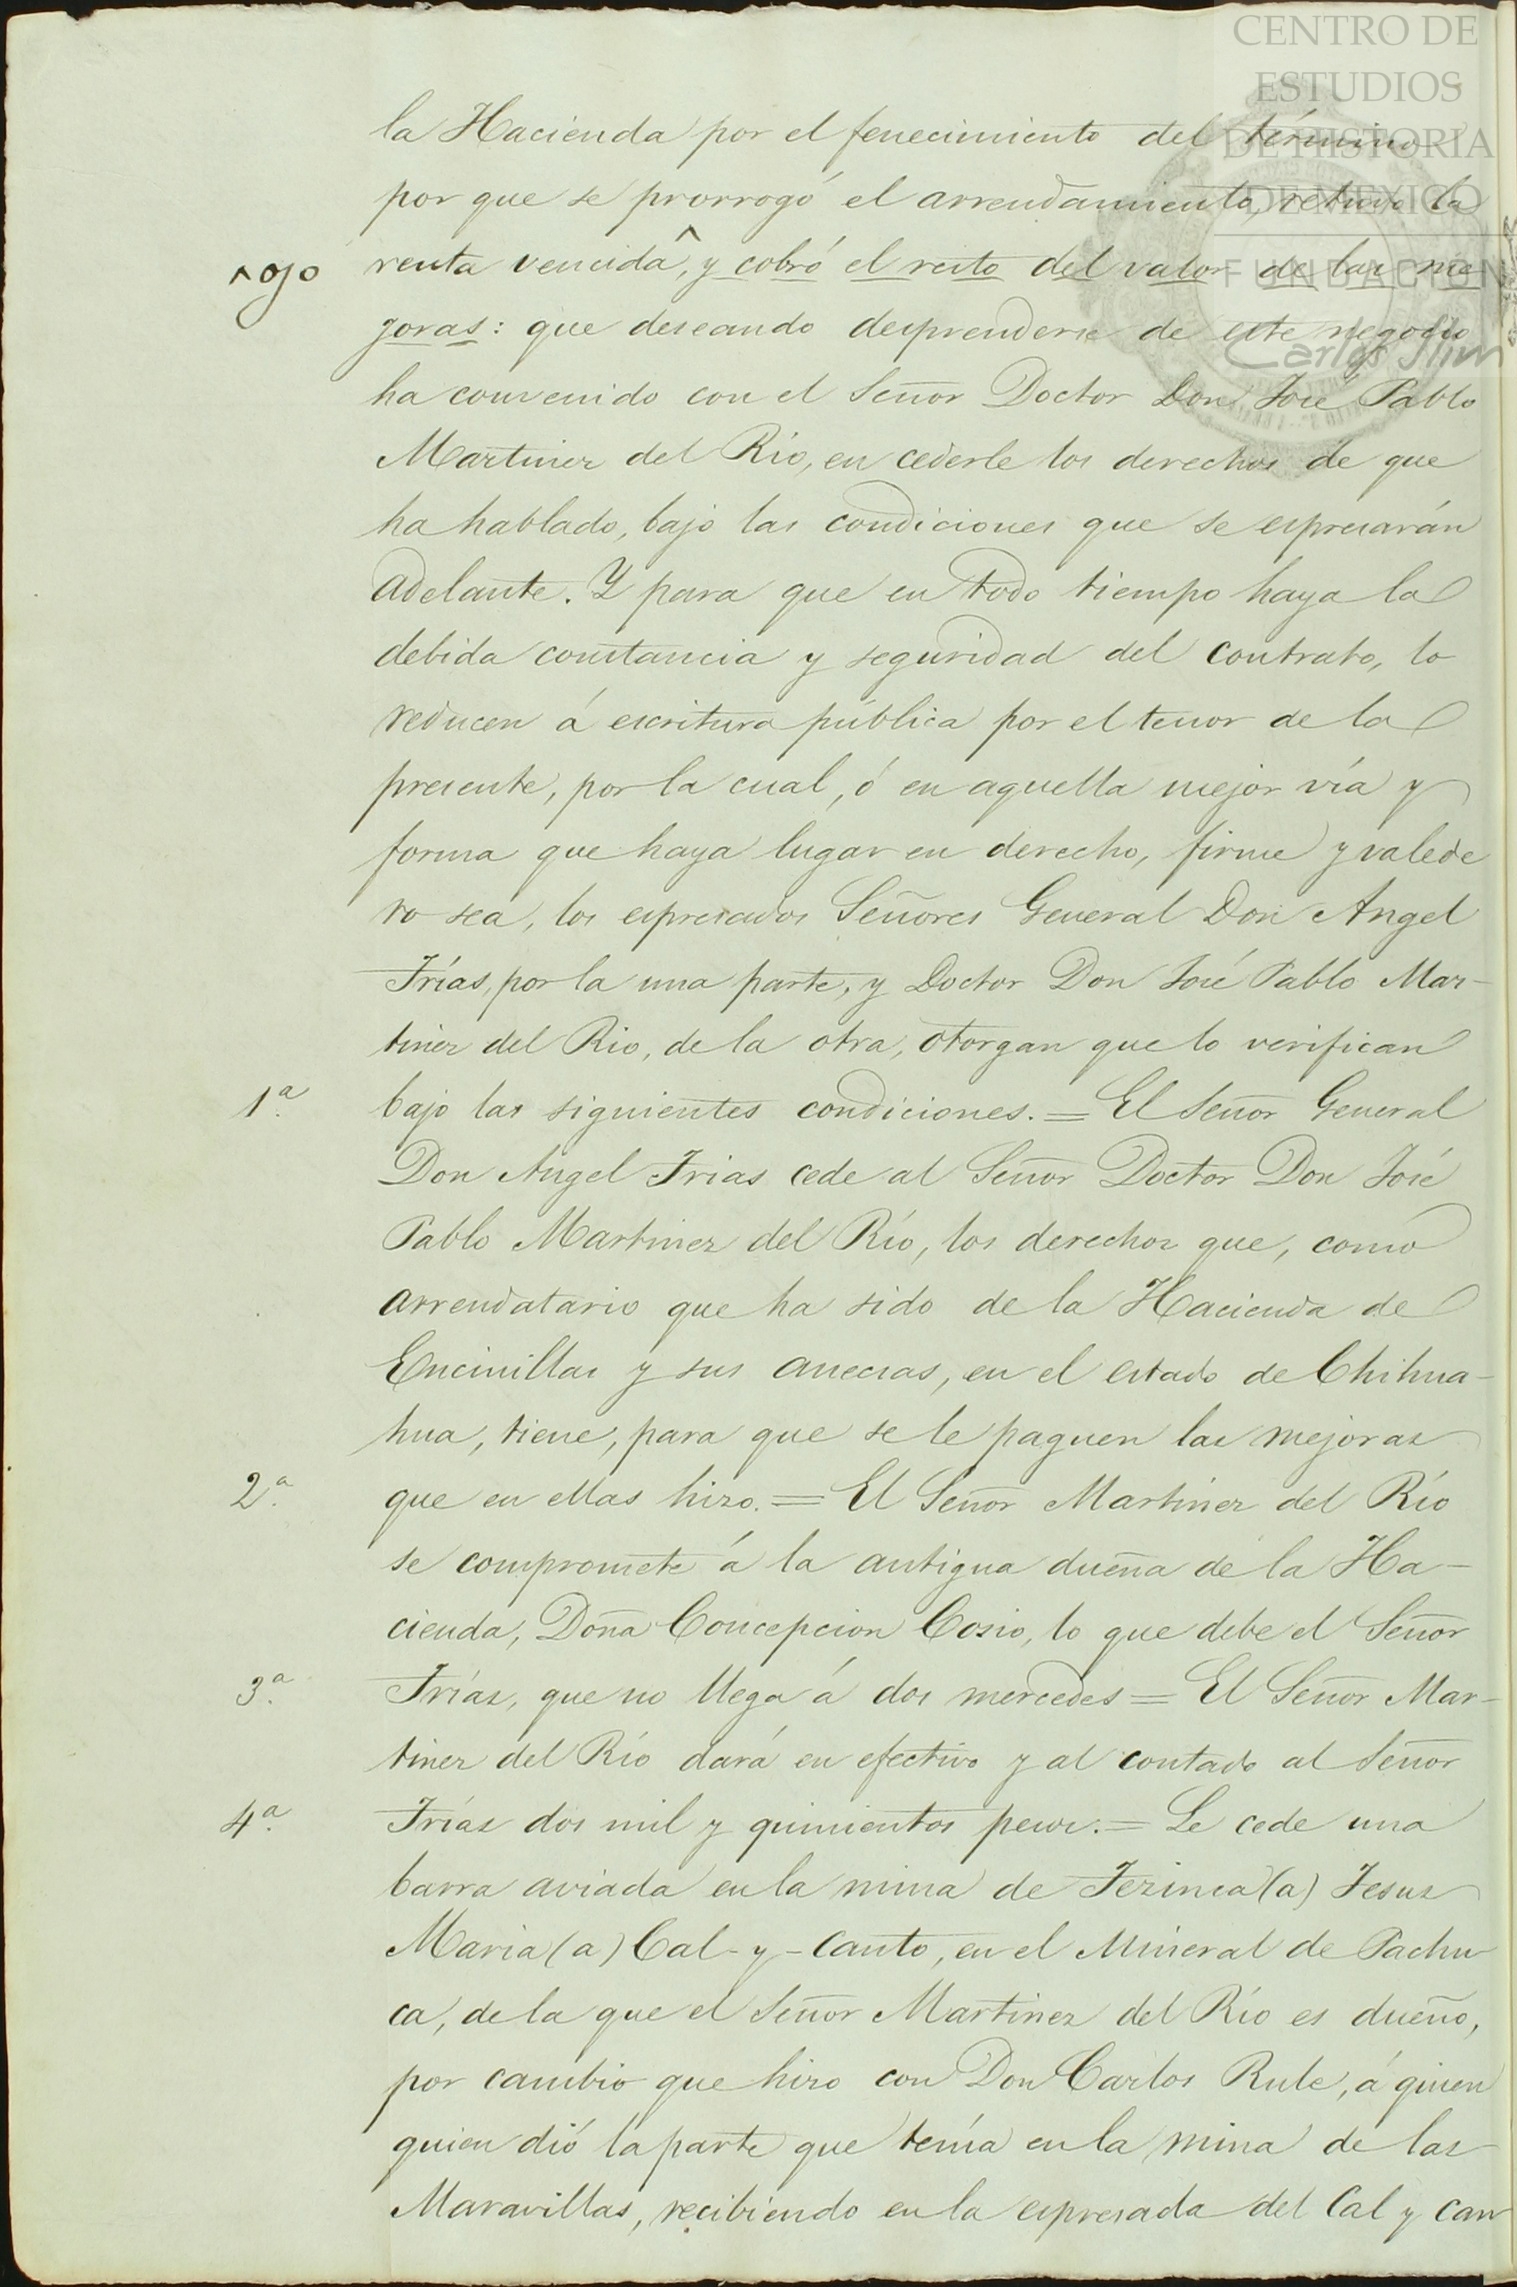 CENTRO DE
ESTUDIOS
DE HISTORIA
DE MEXICO
FUNDACIÓN
Carlos Slim
la Hacienda por el fenecimiento del término
por que se prorrogó el arrendamiento, retuvo la
^ ojo
renta vencida^, y cobró el resto del valor de las me
joras: que deseando desprenderse de este negocio
ha convenido con el Señor Doctor Don José Pablo
Martinez del Río, en cederle los derechos de que
ha hablado, bajo las condiciones que se espresarán
adelante. Y para que en todo tiempo haya la
debida constancia y seguridad del contrato, lo
reducen á escritura pública por el tenor de la
presente, por la cual, ó en aquella mejor vía y
forma que haya lugar en derecho, firme y valede
ro sea, los espresados Señores General Don Angel
Frías, por la una parte, y Doctor Don José Pablo Mar-
tinez del Rio, de la otra, otorgan que lo verifican
1ª.
bajo las siguientes condiciones. = El Señor General
Don Angel Frias cede al Señor Doctor Don José
Pablo Martinez del Río, los derechos que, como
arrendatario que ha sido de la Hacienda de
Encinillas y sus anecsas, en el estado de Chihua-
hua, tiene, para que se le paguen las mejoras
2ª.
que en ellas hizo. = El Señor Martinez del Río
se compromete á la antigua dueña de la Ha-
cienda, Doña Concepcion Cosio, lo que debe el Señor
3ª.
Frías, que no llega á dos mercedes = El Señor Mar-
tinez del Río dará en efectivo y al contado al Señor
4ª.
Frías dos mil y quinientos pesos. = Le cede una
barra aviada en la mina de (a) Jesus
Maria (a) Cal-y-canto, en el Mineral de Pachu-
ca, de la que el Señor Martinez del Río es dueño,
por cambio que hizo con Don Carlos Rule, á quien
quien dió la parte que tenía en la mina de las
Maravillas, recibiendo en la espresada del Cal y can